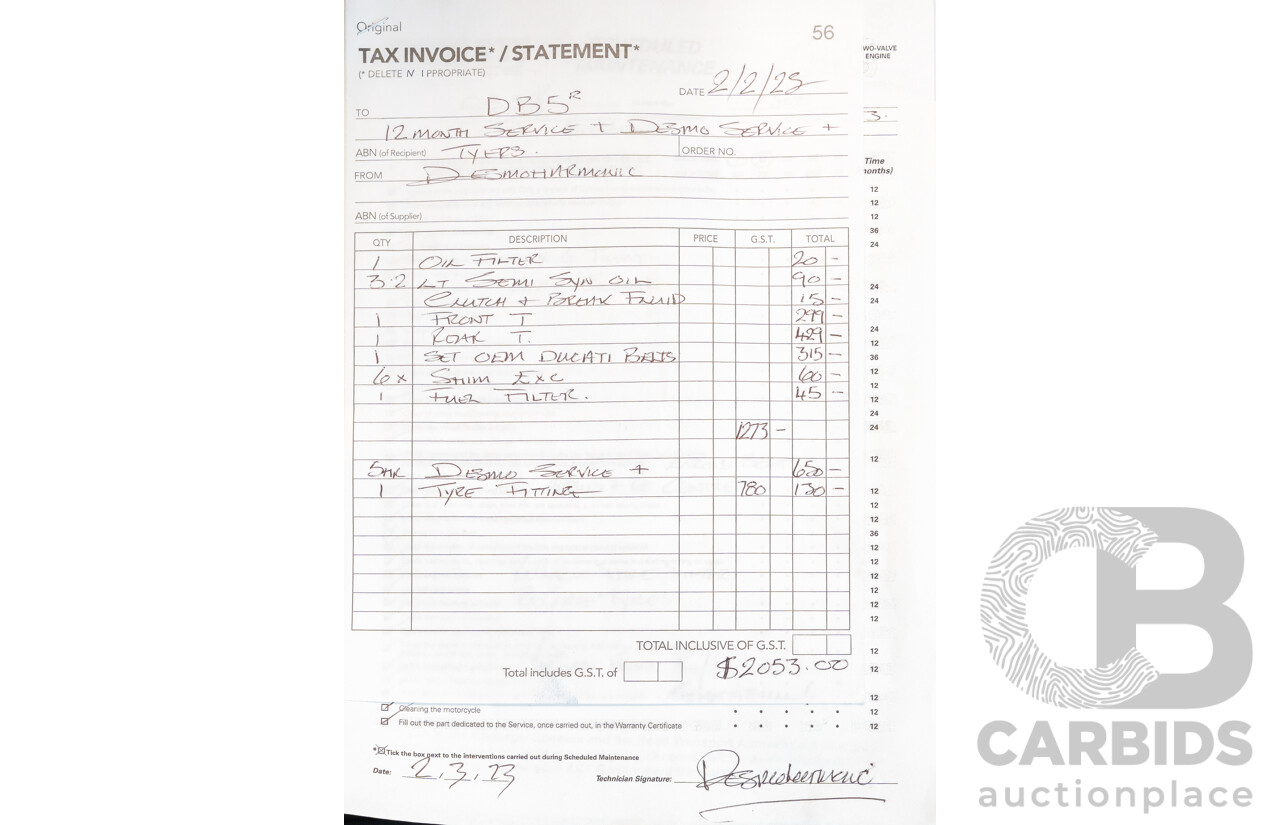 Original
56
TAX INVOICE* / STATEMENT*
(* DELETE IN PPROPRIATE)
WO-VALVE
ENGINE
DATE 2/2/23
TO DB5R
3.
12 MONTH SERVICE + DESMO SERVICE +
ABN (of Recipient) TYERS. ORDER NO.
Time
FROM DESMOHARMONIC
onths)
12
12
ABN (of Supplier)
12
QTY DESCRIPTION PRICE G.S.T. TOTAL
36
24
1 OIL FILTER 20 -
3.2 LT SEMI SYN OIL 90 -
24
CLUTCH + BREAK FLUID 15 -
24
1 FRONT T 299 -
24
1 ROAR T. 429 -
12
1 SET OEM DUCATI BELTS 315 -
36
6x SHIM EXC 60 -
12
12
1 FUEL FILTER. 45 -
12
24
1273 -
24
12
5HR DESMO SERVICE + 650 -
1 TYRE FITTING 780 130 -
12
12
12
36
12
12
12
12
12
12
TOTAL INCLUSIVE OF G.S.T.
12
Total includes G.S.T. of $2053.00
12
12
Cleaning the motorcycle • • • • • 12
Fill out the part dedicated to the Service, once carried out, in the Warranty Certificate • • • • • 12
* Tick the box next to the interventions carried out during Scheduled Maintenance
Date: 2.3.23 Technician Signature: Desmoharmonic
CB
CARBIDS
auctionplace